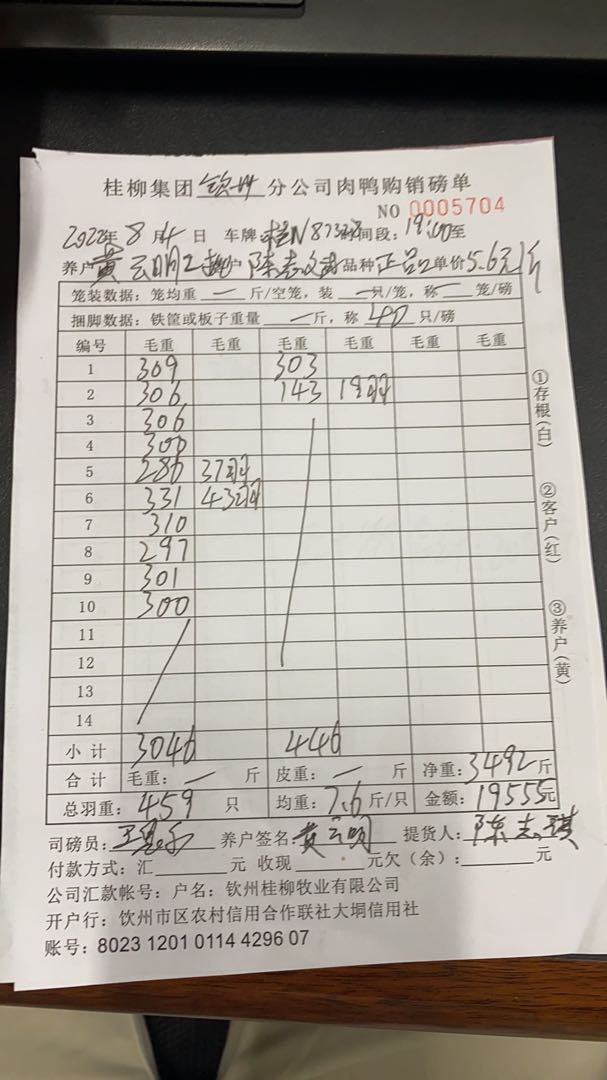 桂柳集团 钦州 分公司肉鸭购销磅单
NO 0005704
2022年 8 月 4 日 车牌: 桂N 时间段: 19:00至
养户 黄云明 户 陈志 品种 正品 单价 5.6元/斤
笼装数据: 笼均重 — 斤/空笼, 装 — 只/笼, 称 — 笼/磅
捆脚数据: 铁筐或板子重量 — 斤, 称 40 只/磅
编号 毛重 毛重 毛重 毛重 毛重 毛重
1 309 303
2 306 143 19羽
3 306
4 300
5 286 37羽
6 331 43羽
7 310
8 297
9 301
10 300
11
12
13
14
小计 3046 446
合计 毛重: — 斤 皮重: — 斤 净重: 3492 斤
总羽重: 459 只 均重: 7.6 斤/只 金额: 19555元
司磅员: 养户签名: 黄云明 提货人: 陈志
付款方式: 汇 元 收现 元 欠(余): 元
公司汇款帐号: 户名: 钦州桂柳牧业有限公司
开户行: 饮州市区农村信用合作联社大垌信用社
账号: 8023 1201 0114 4296 07
①存根(白)
②客户(红)
③养户(黄)